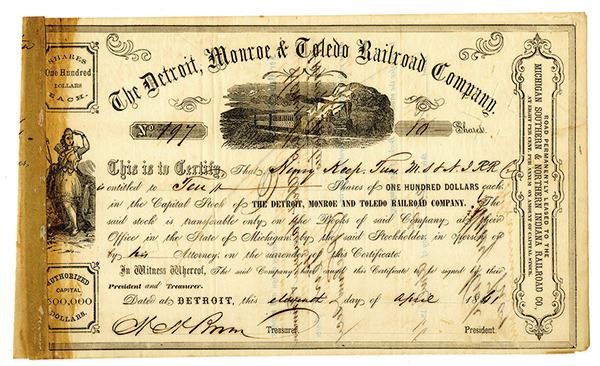 SHARES
One Hundred
DOLLARS
EACH.
The Detroit, Monroe & Toledo Railroad Company.
No 197
10 Shares
This is to Certify That Henry Keep, Treas M S & N I RR Co
is entitled to Ten Shares of ONE HUNDRED DOLLARS each
in the Capital Stock of THE DETROIT, MONROE AND TOLEDO RAILROAD COMPANY. The
said stock is transferable only on the Books of said Company at their
Office in the State of Michigan, by the said Stockholder, in person or
by his Attorney, on the surrender of this Certificate.
In Witness Whereof, The said Company have caused this Certificate to be signed by their
President and Treasurer.
Dated at DETROIT, this eleventh day of april 1861
Treasurer.
President.
AUTHORIZED
CAPITAL
500,000
DOLLARS.
ROAD PERMANENTLY LEASED TO THE
MICHIGAN SOUTHERN & NORTHERN INDIANA RAILROAD CO.
AT EIGHT PER CENT PER ANNUM ON AMOUNT OF CAPITAL STOCK.